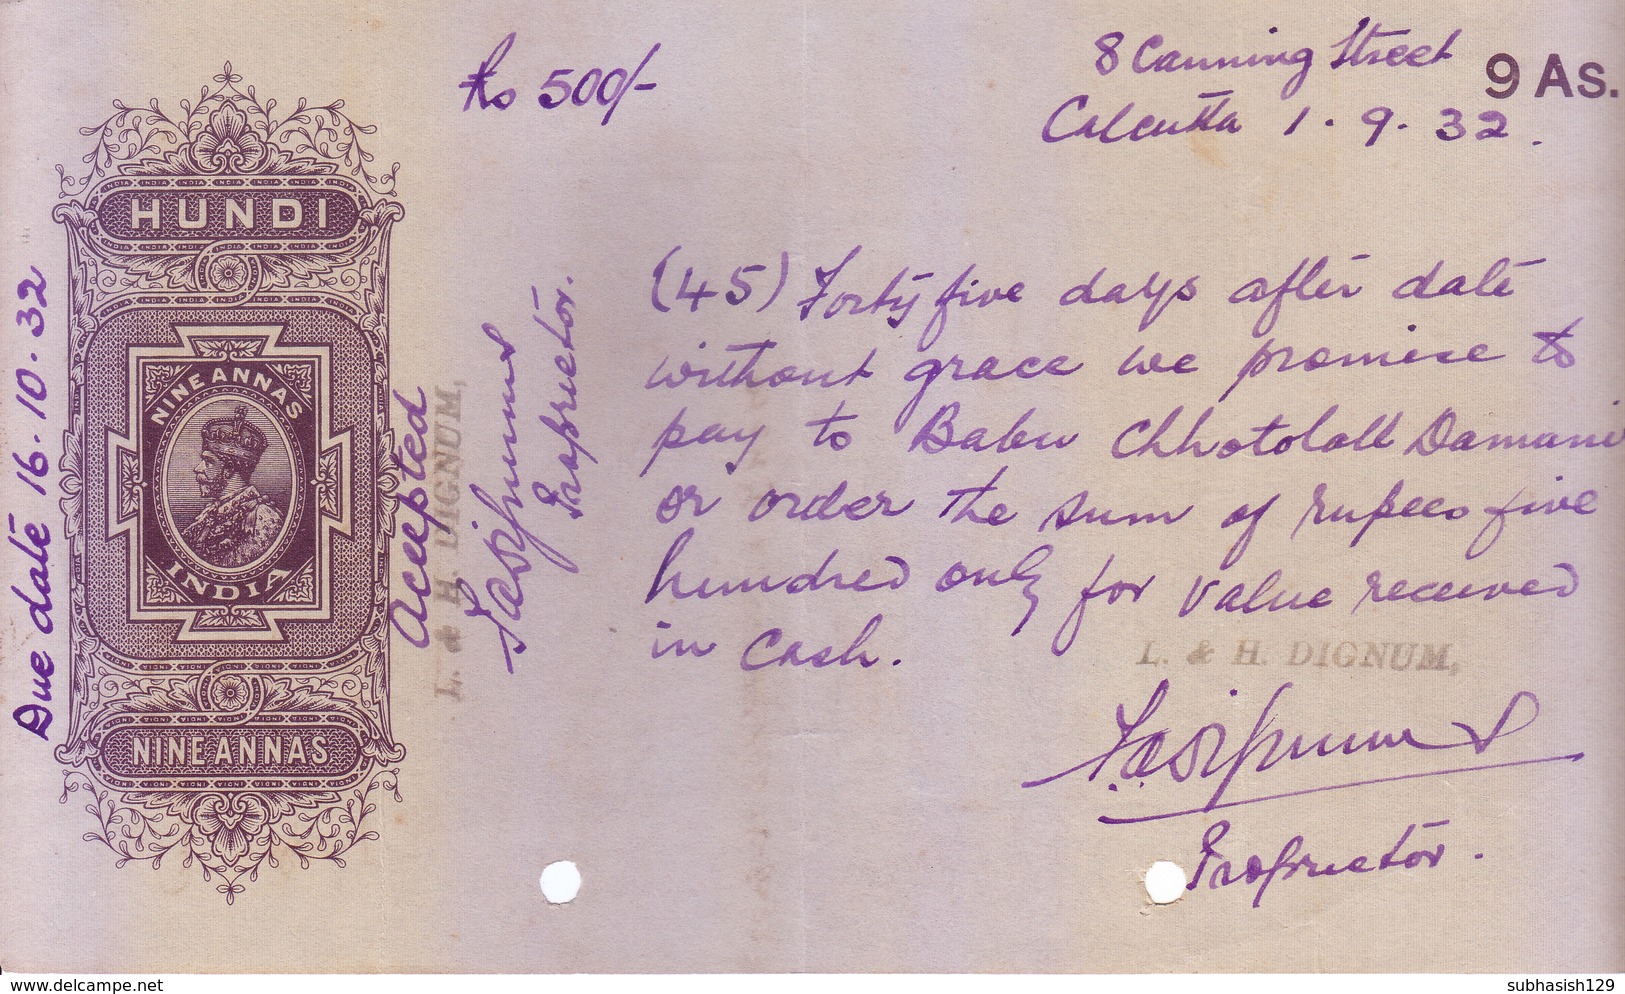 Rs 500/-
8 Canning Street
Calcutta 1.9.32.
9 As.
HUNDI
NINE ANNAS
INDIA
NINE ANNAS
Due date 16.10.32
Accepted
L. & H. DIGNUM,
Proprietor.
(45) Forty five days after date
without grace we promise to
pay to Babu Chhotolall Damani
or order the sum of rupees five
hundred only for value received
in cash.
L. & H. DIGNUM,
Proprietor.
delcampe.net
subhasish129